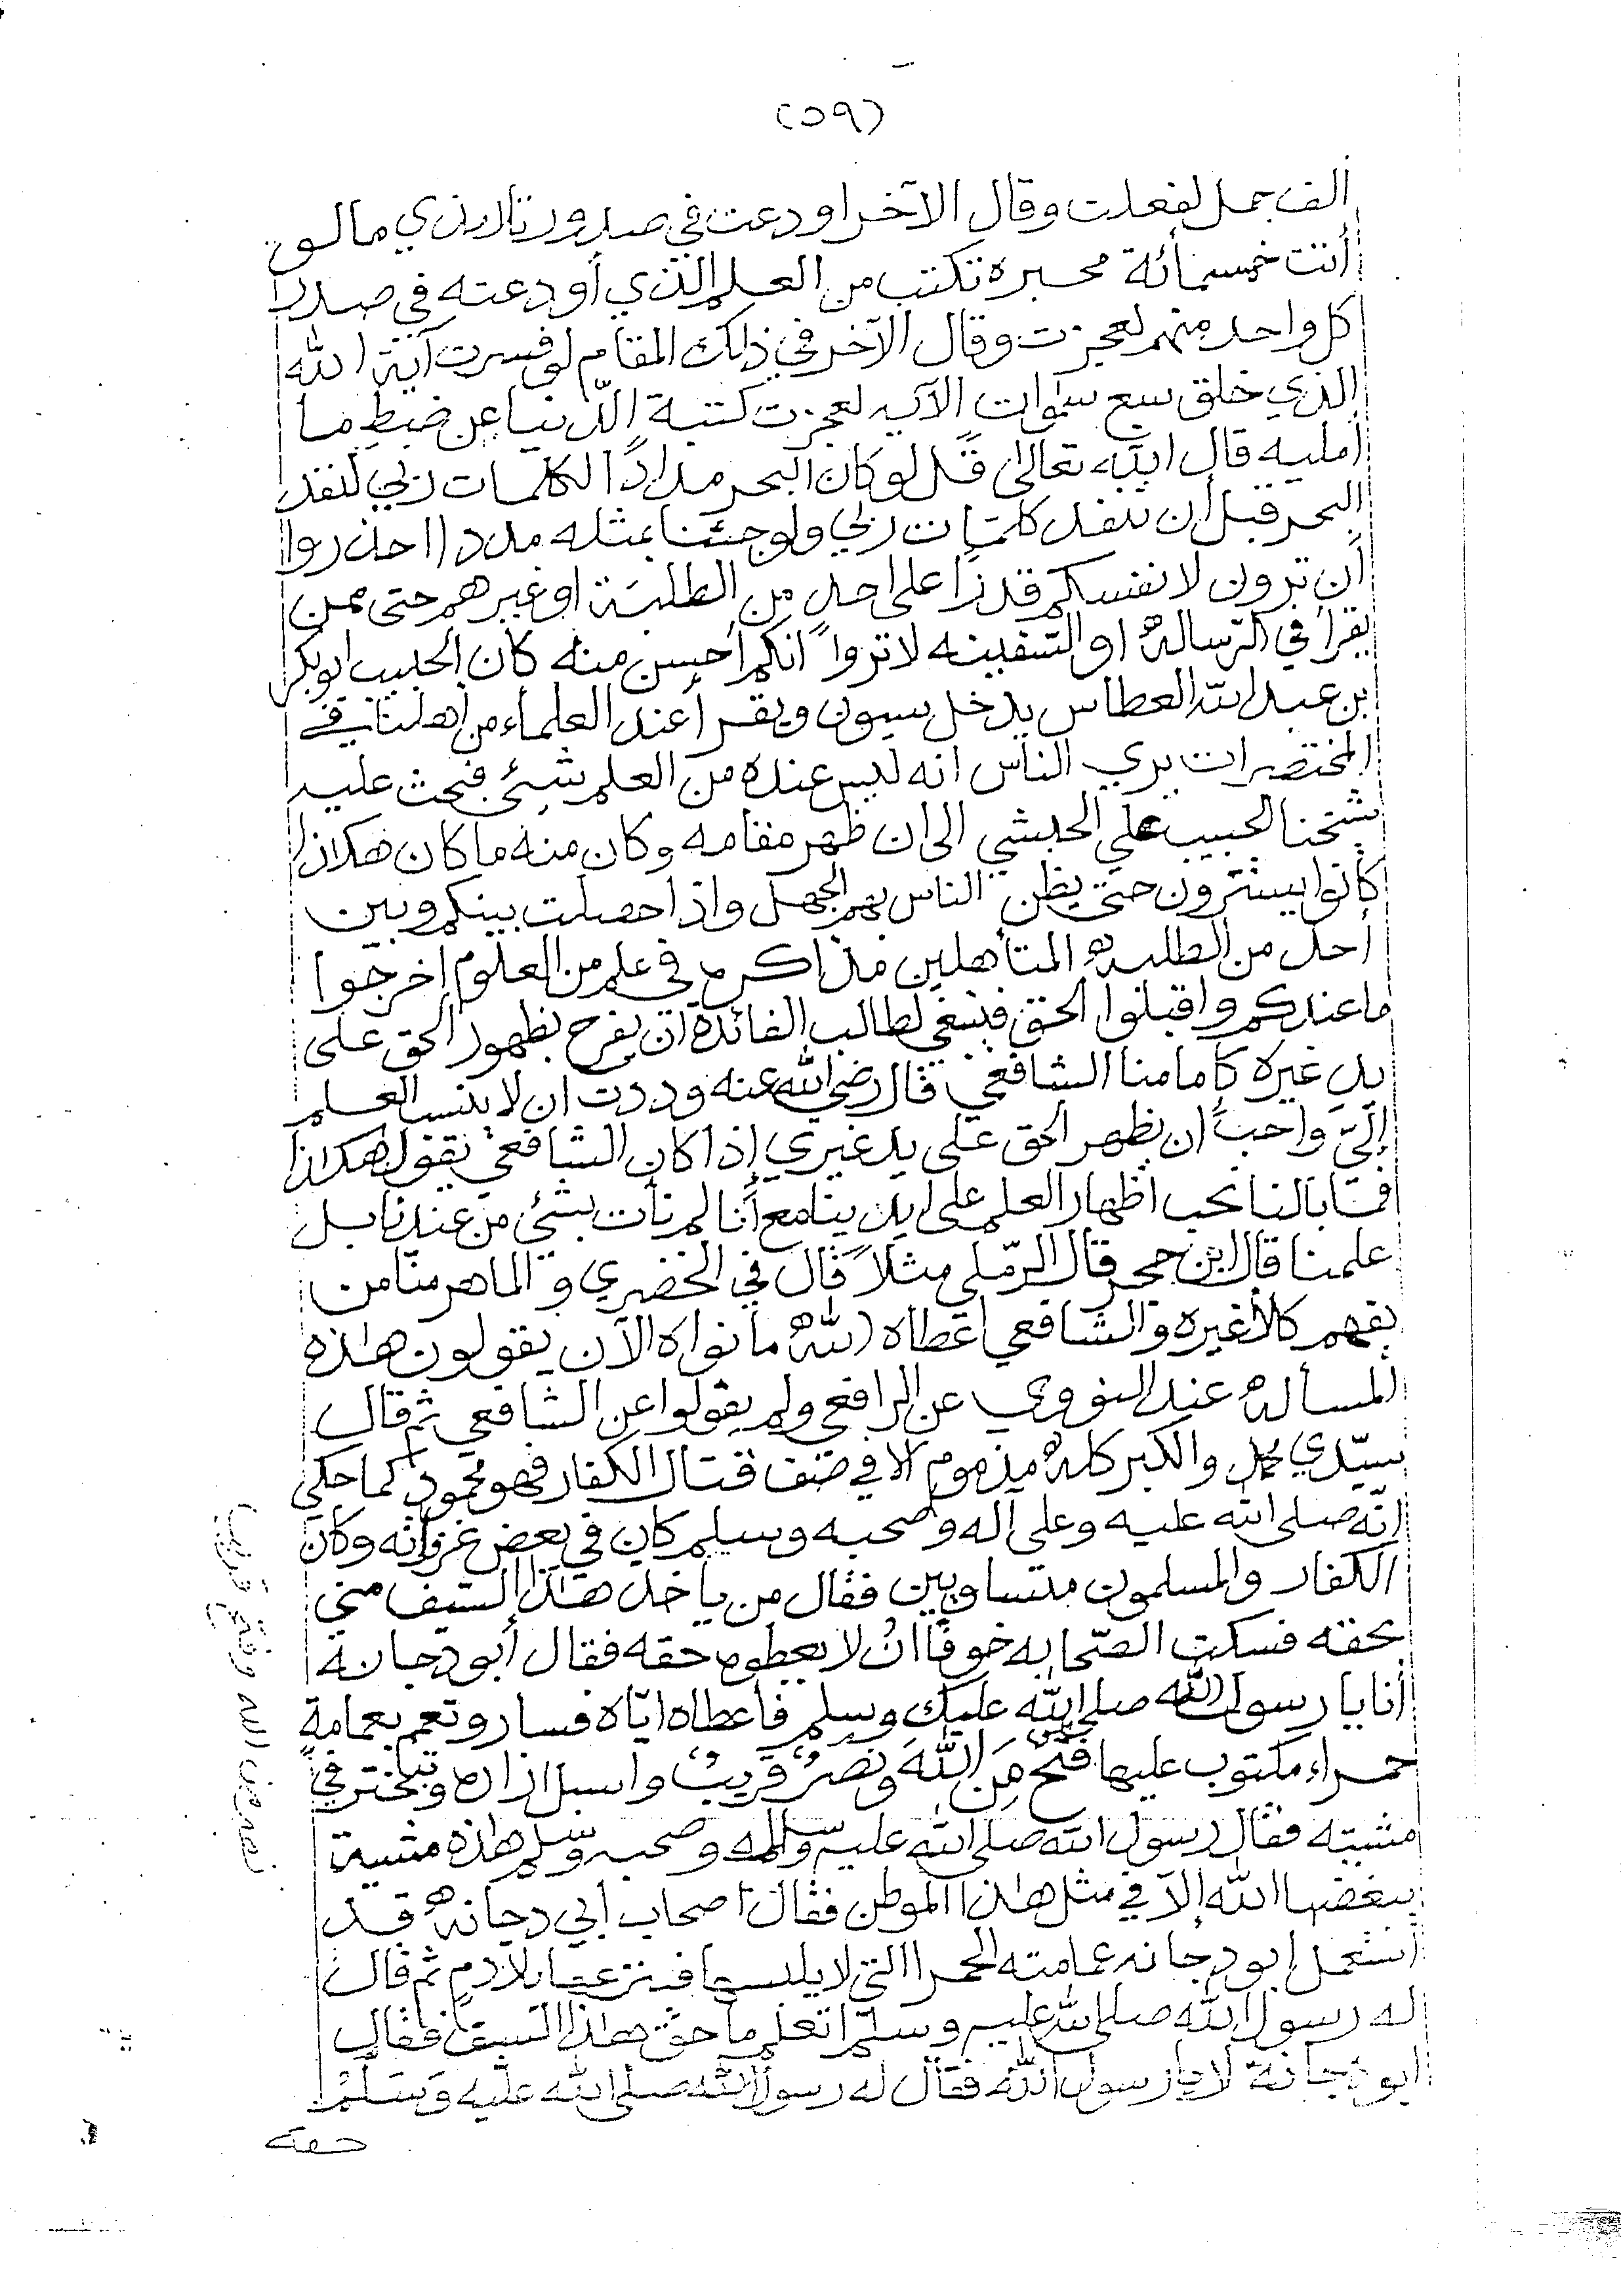 (٥٩)
الف جمل لفعلت وقال الآخر اودعت في صدور تلامذي مالو
أتت خمسمائة محبرة تكتب من العلم الذي أودعته في صدر
كل واحد منهم لعجزت وقال الآخر في ذلك المقام لو فسرت آية الله
الذي خلق سبع سموات الآيه لعجزت كتبة الدّنيا عن ضبط ما
امليه قال الله تعالى قل لو كان البحر مدادًا لكلمات ربي لنفد
البحر قبل أن تنفد كلمات ربي ولو جئنا بمثله مددا احذروا
أن ترون لانفسكم قدرًا على احد من الطلبة او غيرهم حتى ممن
يقرأ في الرسالة او السفينه لا تروا انكم احسن منه كان الحبيب ابوبكر
بن عبد الله العطاس يدخل سيون ويقرأ عند العلماء من أهلنا في
المختصرات يري الناس انه ليس عنده من العلم شيئ فبحث عليه
شيخنا الحبيب علي الحبشي الى ان ظهر مقامه وكان منه ما كان هكذا
كانوا يستترون حتى يظن الناس بهم الجهل واذا حصلت بينكم وبين
أحد من الطلبة المتأهلين مذاكره في علم من العلوم اخرجوا
ما عندكم واقبلوا الحق فينبغي لطالب الفائدة ان يفرح بظهور الحق على
يد غيره كامامنا الشافعي قال رضي الله عنه وددت ان لا ينسب العلم
إليّ واحب ان يظهر الحق على يد غيري إذا كان الشافعي يقول هكذا
فما بالنا نحب اظهار العلم على ايدينا مع أنا لم نأت بشئ من عندنا بل
علمنا قال ابن حجر قال الرّملي مثلاً قال في الخضري والماهر منّا من
يفهم كلام غيره والشافعي اعطاه الله ما نواه الآن يقولون هذه
المسألة عند النووي عن الرافعي ولم يقولوا عن الشافعي ثم قال
سيّدي محمد والكبر كله مذموم الا في صف قتال الكفار فهو محمود كما حكي
انّه صلى الله عليه وعلى اله وصحبه وسلم كان في بعض غزواته وكان
الكفار والمسلمون متساويين فقال من يأخذ هذا السيف مني
بحقه فسكت الصّحابه خوفًا انْ لا يعطوه حقه فقال أبودجانة
أنا يا رسول الله صلى الله عليك وسلم فأعطاه ايّاه فسار وتعمم بعمامةٍ
حمراء مكتوب عليها فتح مِنَ اللهَ ونصرٌ قريبٌ واسبل ازاره وتبختر في
مشيته فقال رسول الله صلى الله عليه واله وصحبه وسلم هذه مشية
يبغضها الله إلا في مثل هذا الموطن فقال اصحاب أبي دجانة قد
استعمل ابودجانه عمامته الحمرا التي لا يلبسها فينزعها بلا دمٍ ثم قال
له رسول الله صلى الله عليه وسلّم اتعلم ما حق هذا السيف فقال
ابودجانة لا يا رسول الله فقال له رسول الله صلى الله عليه وَسَلّمْ
حقه
نصر من الله وفتح قريب